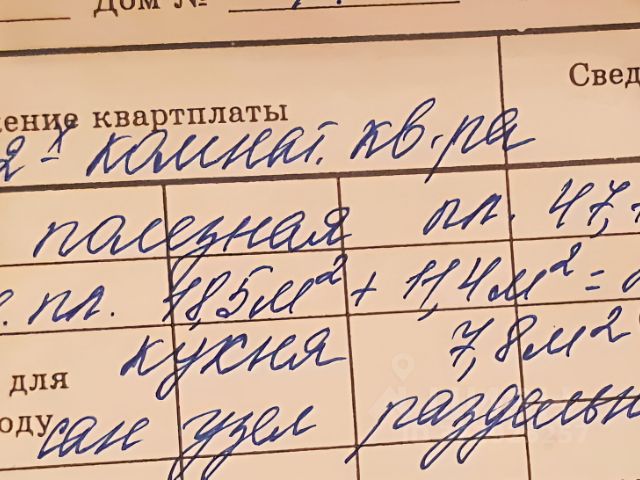 Дом №
Свед
ение квартплаты
2-х комнат. кв-ра
полезная пл. 47,
пл. 18,5 м² + 11,4 м² =
кухня 7,8 м²
для
оду сан узел раздельн